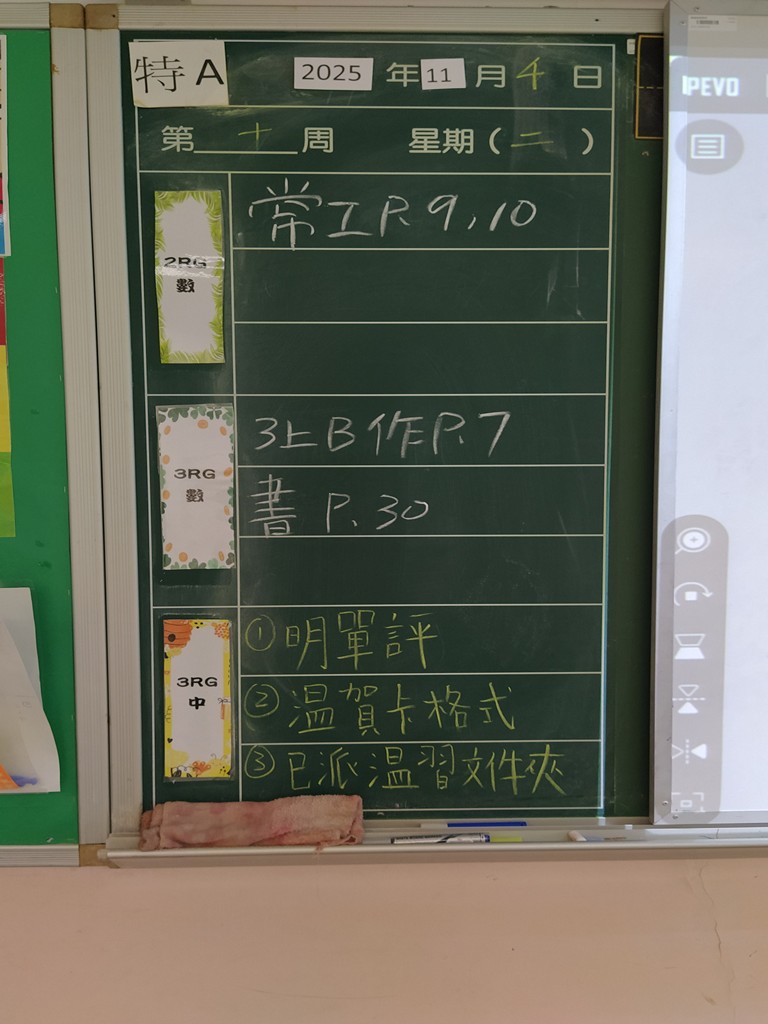 特A 2025 年 11 月 4 日
第 十 周 星期(二)
2RG
數
常工 P. 9, 10
3RG
數
3上B 作 P. 7
書 P. 30
3RG
中
① 明單評
② 温賀卡格式
③ 已派温習文件夾
IPEVO